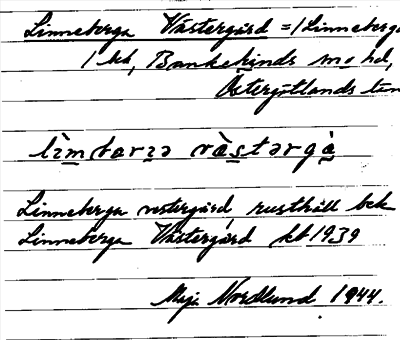 Linneberga Västergård = / Linneberga
1 kb, Bankekinds sn o hd,
Östergötlands län
Linneberga vestergård, rusthåll bek
Linneberga Västergård kb 1939
Nordlund 1944.